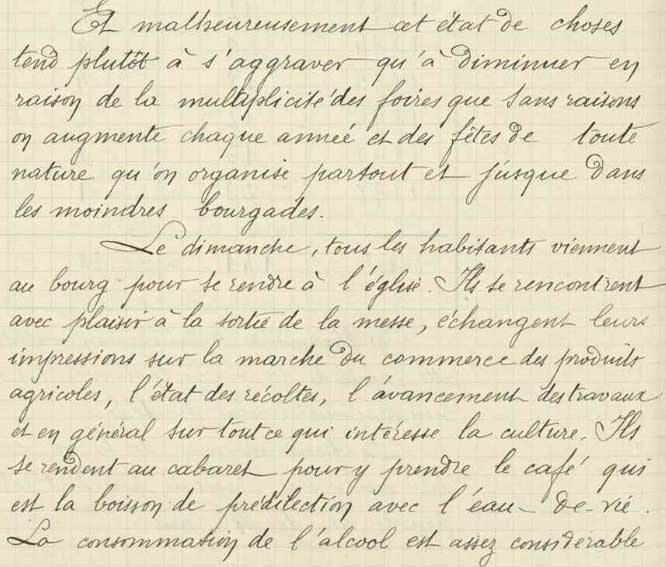 Et malheureusement cet état de choses
tend plutôt à s'aggraver qu'à diminuer en
raison de la multiplicité des foires que sans raisons
on augmente chaque année et des fêtes de toute
nature qu'on organise partout et jusque dans
les moindres bourgades.
Le dimanche, tous les habitants viennent
au bourg pour se rendre à l'église. Ils se rencontrent
avec plaisir à la sortie de la messe, échangent leurs
impressions sur la marche du commerce des produits
agricoles, l'état des récoltes, l'avancement des travaux
et en général sur tout ce qui intéresse la culture. Ils
se rendent au cabaret pour y prendre le café qui
est la boisson de prédilection avec l'eau-de-vie.
La consommation de l'alcool est assez considérable